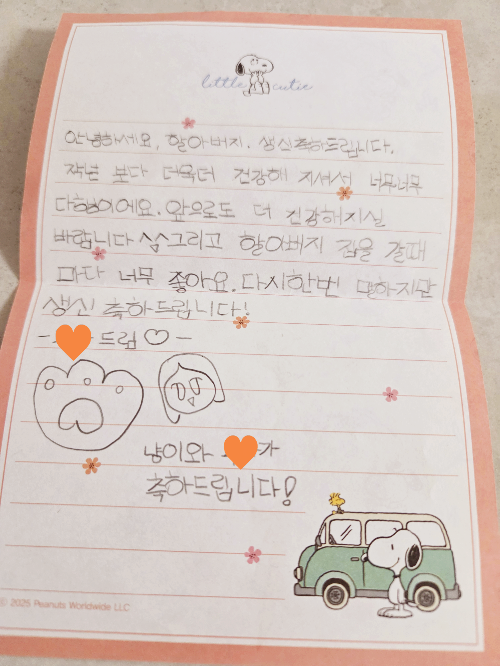 little cutie
안녕하세요, 할아버지. 생신축하드립니다.
작년 보다 더욱더 건강해 지셔서 너무너무
다행이에요. 앞으로도 더 건강해지실
바랍니다 ^^그리고 할아버지 집을 갈때
마다 너무 좋아요. 다시한번 말하지만
생신 축하드립니다!
드림♡-
냥이와 가
축하드립니다!
© 2025 Peanuts Worldwide LLC